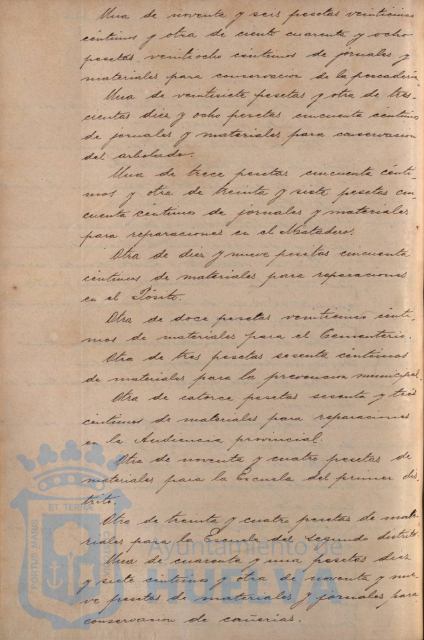 Una de noventa y seis pesetas veinticinco
céntimos y otra de ciento cuarenta y ocho
pesetas veintiocho céntimos de jornales y
materiales para conservacion de la pescadería
Una de veintisiete pesetas y otra de tres-
cientas diez y ocho pesetas cincuenta céntimos
de jornales y materiales para conservacion
del arbolado.
Una de trece pesetas cincuenta cénti-
mos y otra de treinta y siete pesetas cin-
cuenta céntimos de jornales y materiales
para reparaciones en el Matadero.
Otra de diez y nueve pesetas cincuenta
céntimos de materiales para reparaciones
en el Pósito.
Otra de doce pesetas cénti-
mos de materiales para el Cementerio.
Otra de tres pesetas sesenta céntimos
de materiales para la prevencion municipal.
Otra de catorce pesetas sesenta y tres
céntimos de materiales para reparaciones
en la Audiencia provincial.
Otra de noventa y cuatro pesetas de
materiales para la Escuela del primer dis-
trito.
Otra de treinta y cuatro pesetas de mate-
riales para la Escuela del segundo distrito.
Una de cuarenta y una pesetas diez
y siete céntimos y otra de noventa y nue-
ve pesetas de materiales y jornales para
conservacion de cañerias.
ET TERRAE
PORTUS MARIS
Ayuntamiento de
HUELVA